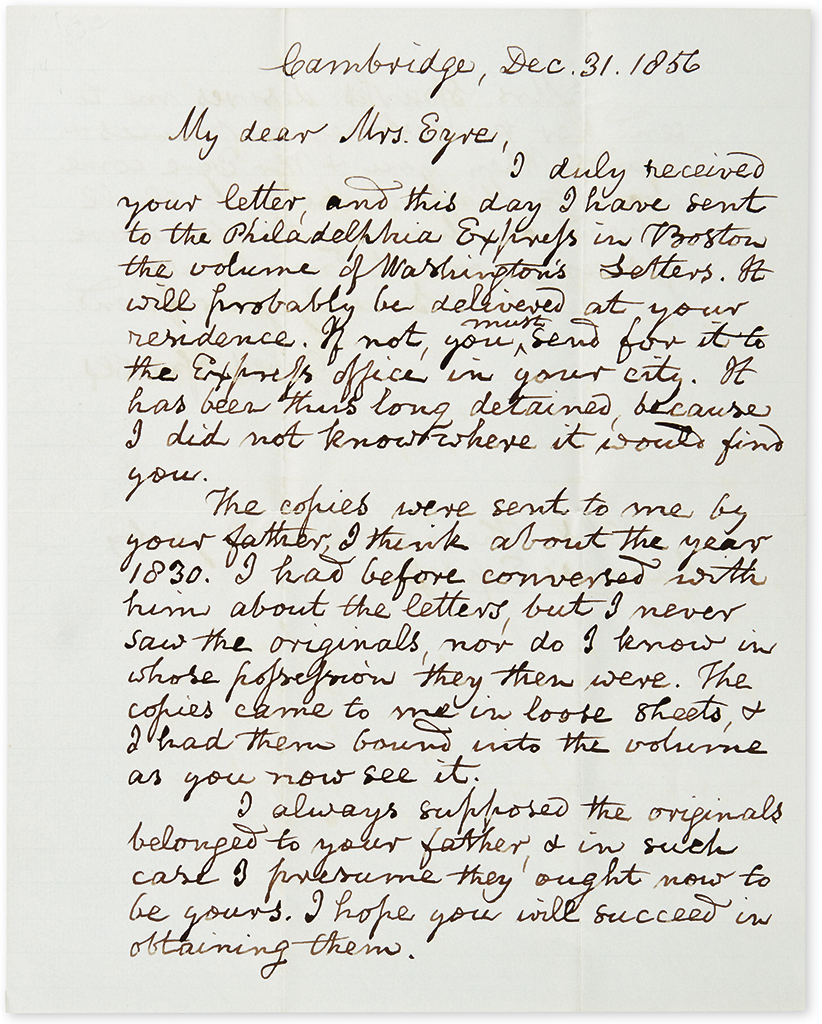 Cambridge, Dec. 31. 1856
My dear Mrs. Eyre,
I duly received
your letter, and this day I have sent
to the Philadelphia Express in Boston
the volume of Washington's Letters. It
will probably be delivered at your
residence. If not, you must send for it to
the Express office in your city. It
has been thus long detained, because
I did not know where it would find
you.
The copies were sent to me by
your father, I think about the year
1830. I had before conversed with
him about the letters, but I never
saw the originals, nor do I know in
whose possession they then were. The
copies came to me in loose sheets, &
I had them bound into the volume
as you now see it.
I always supposed the originals
belonged to your father, & in such
case I presume they ought now to
be yours. I hope you will succeed in
obtaining them.